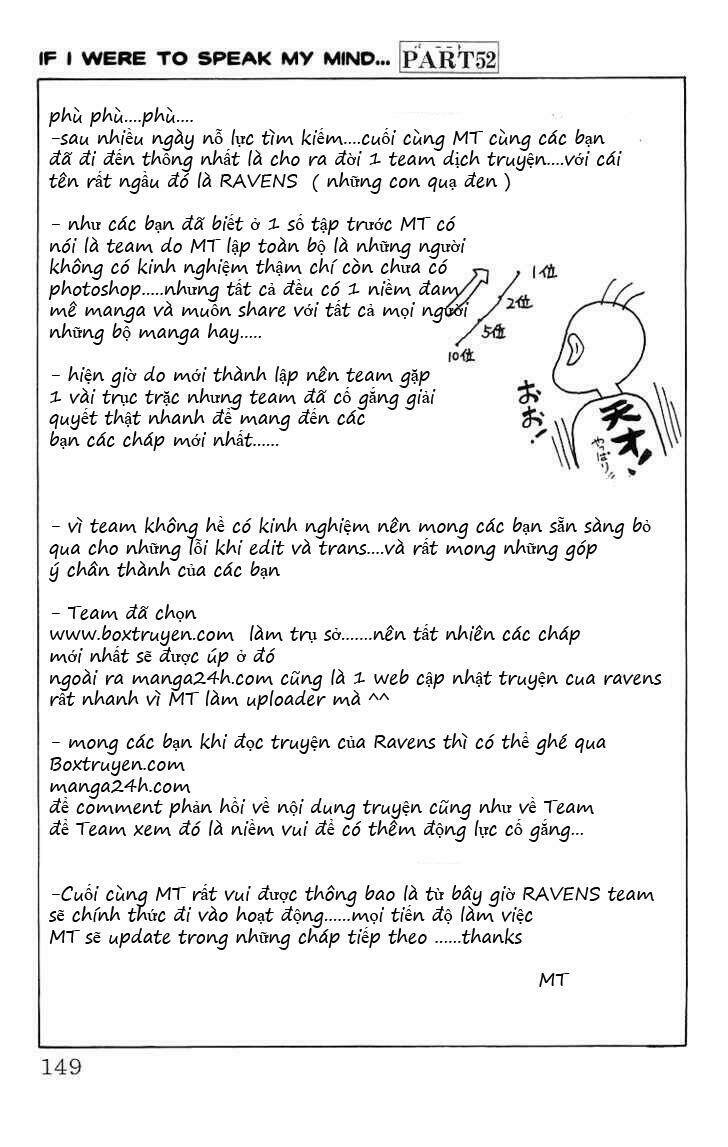 IF I WERE TO SPEAK MY MIND... PART52
phù phù....phù....
-sau nhiều ngày nỗ lực tìm kiếm....cuối cùng MT cùng các bạn
đã đi đến thống nhất là cho ra đời 1 team dịch truyện....với cái
tên rất ngầu đó là RAVENS ( những con quạ đen )
- như các bạn đã biết ở 1 số tập trước MT có
nói là team do MT lập toàn bộ là những người
không có kinh nghiệm thậm chí còn chưa có
photoshop.....nhưng tất cả đều có 1 niềm đam
mê manga và muốn share với tất cả mọi người
những bộ manga hay.....
1位
2位
5位
10位
- hiện giờ do mới thành lập nên team gặp
1 vài trục trặc nhưng team đã cố gắng giải
quyết thật nhanh để mang đến các
bạn các cháp mới nhất......
おお!
天才!
やっぱり!!
- vì team không hề có kinh nghiệm nên mong các bạn sẵn sàng bỏ
qua cho những lỗi khi edit và trans....và rất mong những góp
ý chân thành của các bạn
- Team đã chọn
www.boxtruyen.com làm trụ sở.......nên tất nhiên các cháp
mới nhất sẽ được úp ở đó
ngoài ra manga24h.com cũng là 1 web cập nhật truyện cua ravens
rất nhanh vì MT làm uploader mà ^^
- mong các bạn khi đọc truyện của Ravens thì có thể ghé qua
Boxtruyen.com
manga24h.com
để comment phản hồi về nội dung truyện cũng như về Team
để Team xem đó là niềm vui để có thêm động lực cố gắng...
-Cuối cùng MT rất vui được thông bao là từ bây giờ RAVENS team
sẽ chính thức đi vào hoạt động......mọi tiến độ làm việc
MT sẽ update trong những cháp tiếp theo ......thanks
MT
149